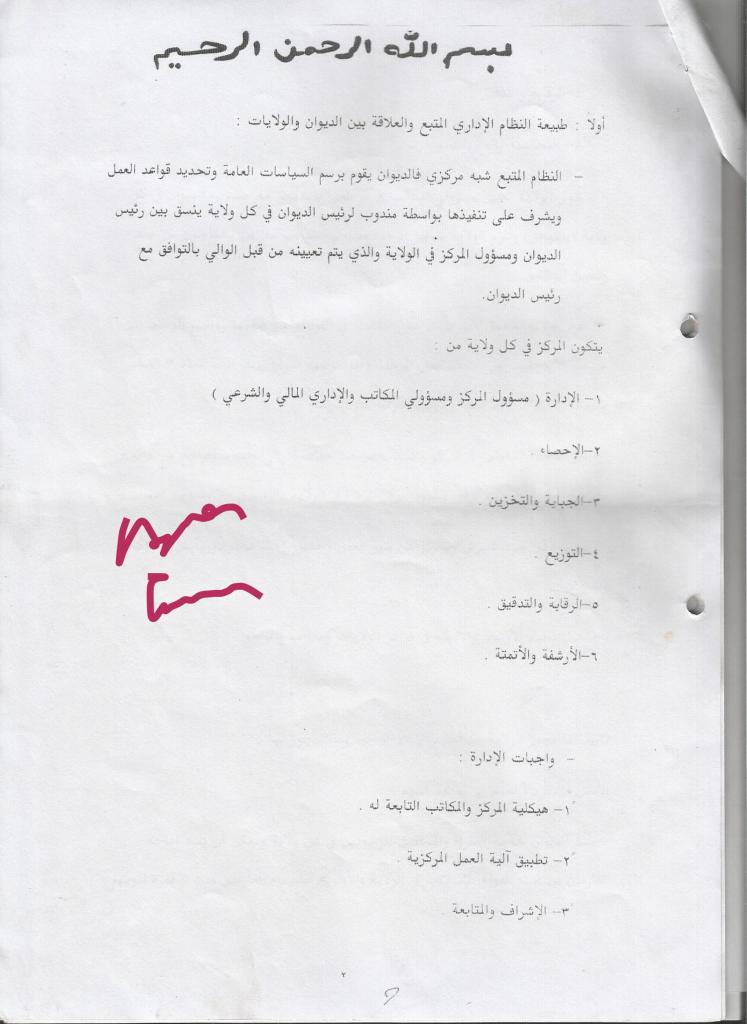 بسم الله الرحمن الرحيم
أولاً : طبيعة النظام الإداري المتبع والعلاقة بين الديوان والولايات :
- النظام المتبع شبه مركزي فالديوان يقوم برسم السياسات العامة وتحديد قواعد العمل
ويشرف على تنفيذها بواسطة مندوب لرئيس الديوان في كل ولاية ينسق بين رئيس
الديوان ومسؤول المركز في الولاية والذي يتم تعيينه من قبل الوالي بالتوافق مع
رئيس الديوان.
يتكون المركز في كل ولاية من :
١- الإدارة ( مسؤول المركز ومسؤولي المكاتب والإداري المالي والشرعي )
٢-الإحصاء .
٣-الجباية والتخزين .
٤-التوزيع .
٥-الرقابة والتدقيق .
٦-الأرشفة والأتمتة .
- واجبات الإدارة :
١- هيكلية المركز والمكاتب التابعة له .
٢- تطبيق آلية العمل المركزية .
٣- الإشراف والمتابعة .
٢